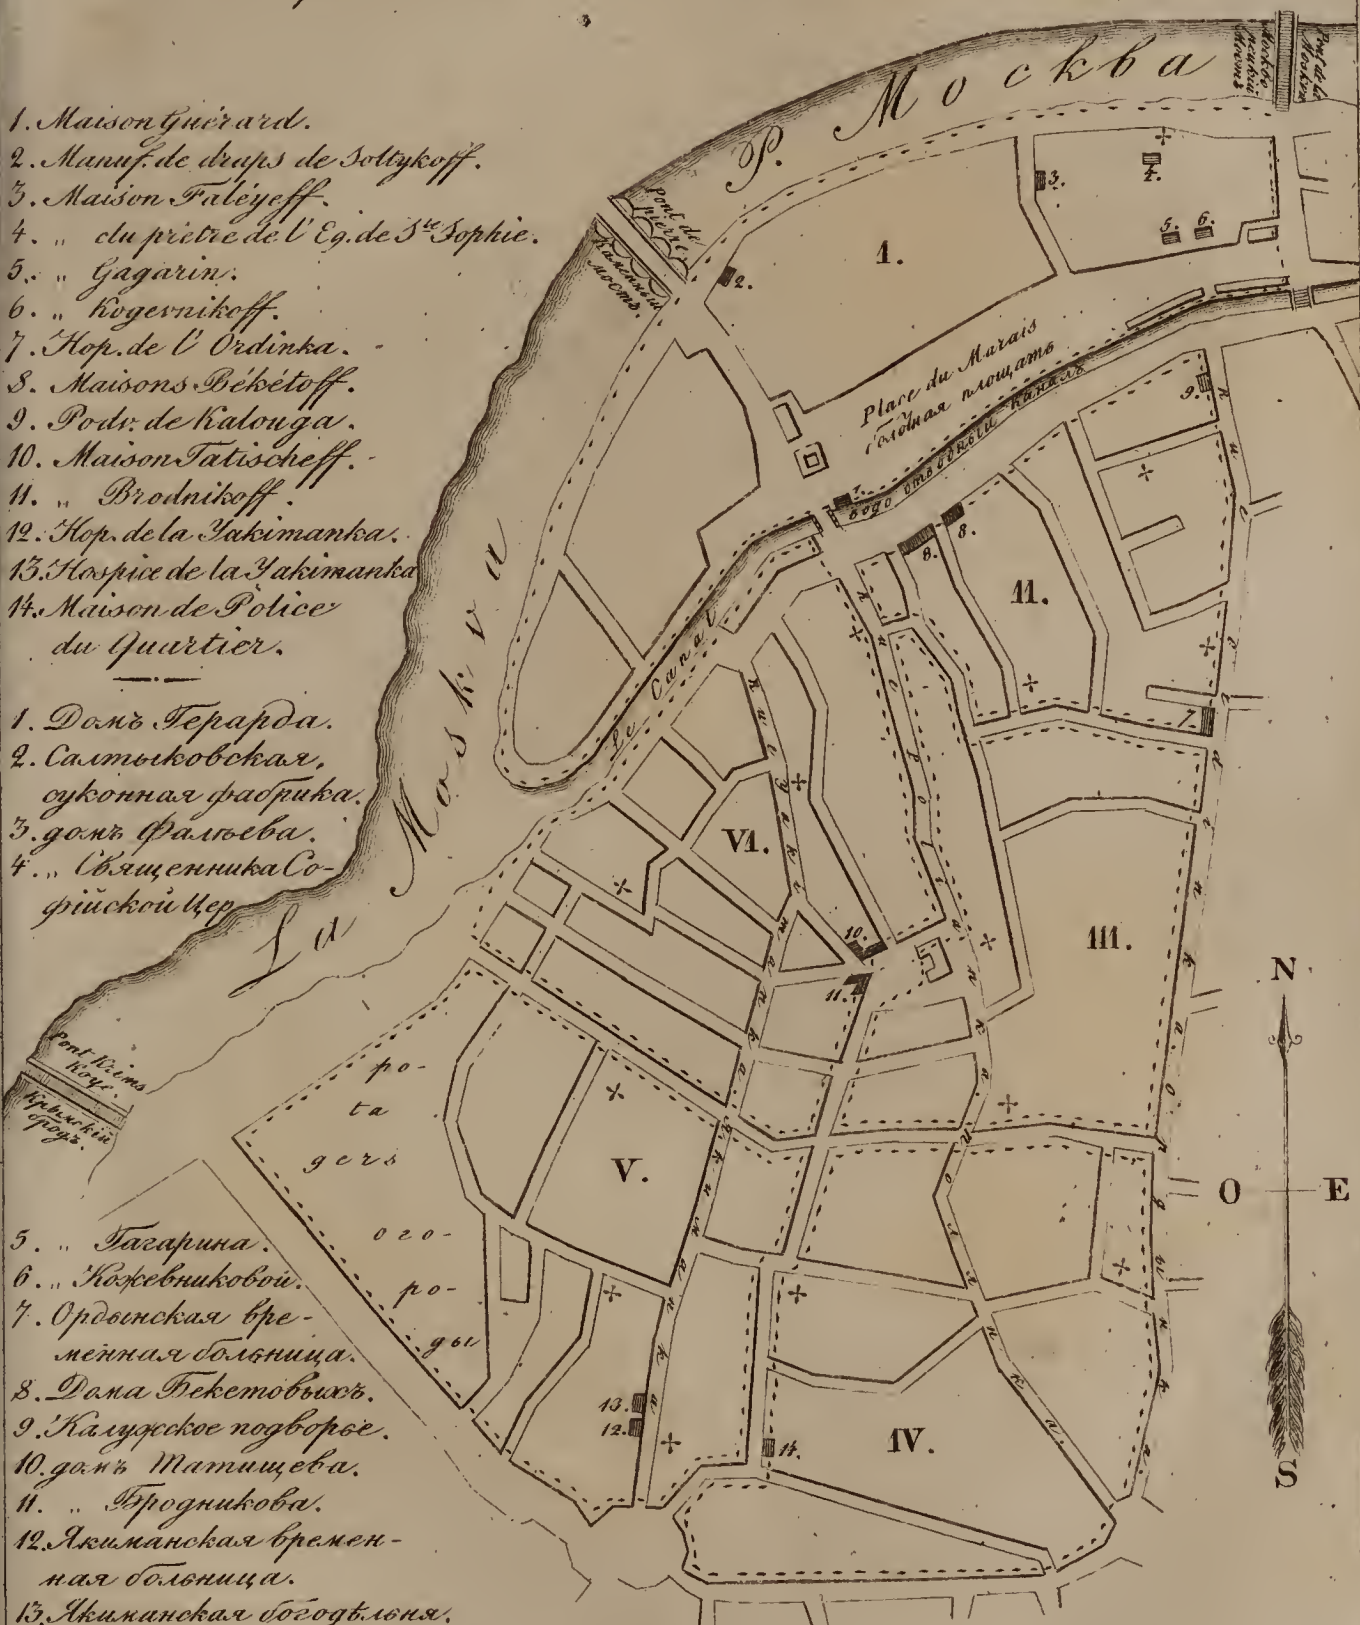 1. Maison Guérard.
2. Manuf. de draps de Soltykoff.
3. Maison Faléyeff.
4. „ du prêtre de l'Eg. de Ste Sophie.
5. „ Gagarin.
6. „ Kogevnikoff.
7. Hop. de l'Ordinka.
8. Maisons Békétoff.
9. Podv. de Kalouga.
10. Maison Tatischeff.
11. „ Brodnikoff.
12. Hop. de la Yakimanka.
13. Hospice de la Yakimanka
14. Maison de Police
du Quartier.
1. Домъ Герарда.
2. Салтыковская,
суконная фабрика.
3. домъ Фалѣева.
4. „ Священника Со-
фійской Цер
5. „ Гагарина.
6. „ Кожевниковой.
7. Ордынская вре-
менная больница.
8. Дома Бекетовыхъ.
9. Калужское подворье.
10. домъ Татищева.
11. „ Бродникова.
12. Якиманская времен-
ная больница.
13. Якиманская богодѣльня.
Р. Москва
Москворецкій мостъ
Pont de la Moskva
Pont de
pierre
Каменный
мостъ.
La Moskva
Pont Krims
Koye.
Крымскій
бродъ.
Place du Marais
Болотная площать
водо отводный каналъ
Le Canal
I.
II.
III.
IV.
V.
VI.
2.
3.
4.
5.
6.
7.
7.
8.
8.
9.
10.
11.
12.
13.
14.
Якиманка
po-
ta
gers
ого-
ро-
ды
N
O
E
S